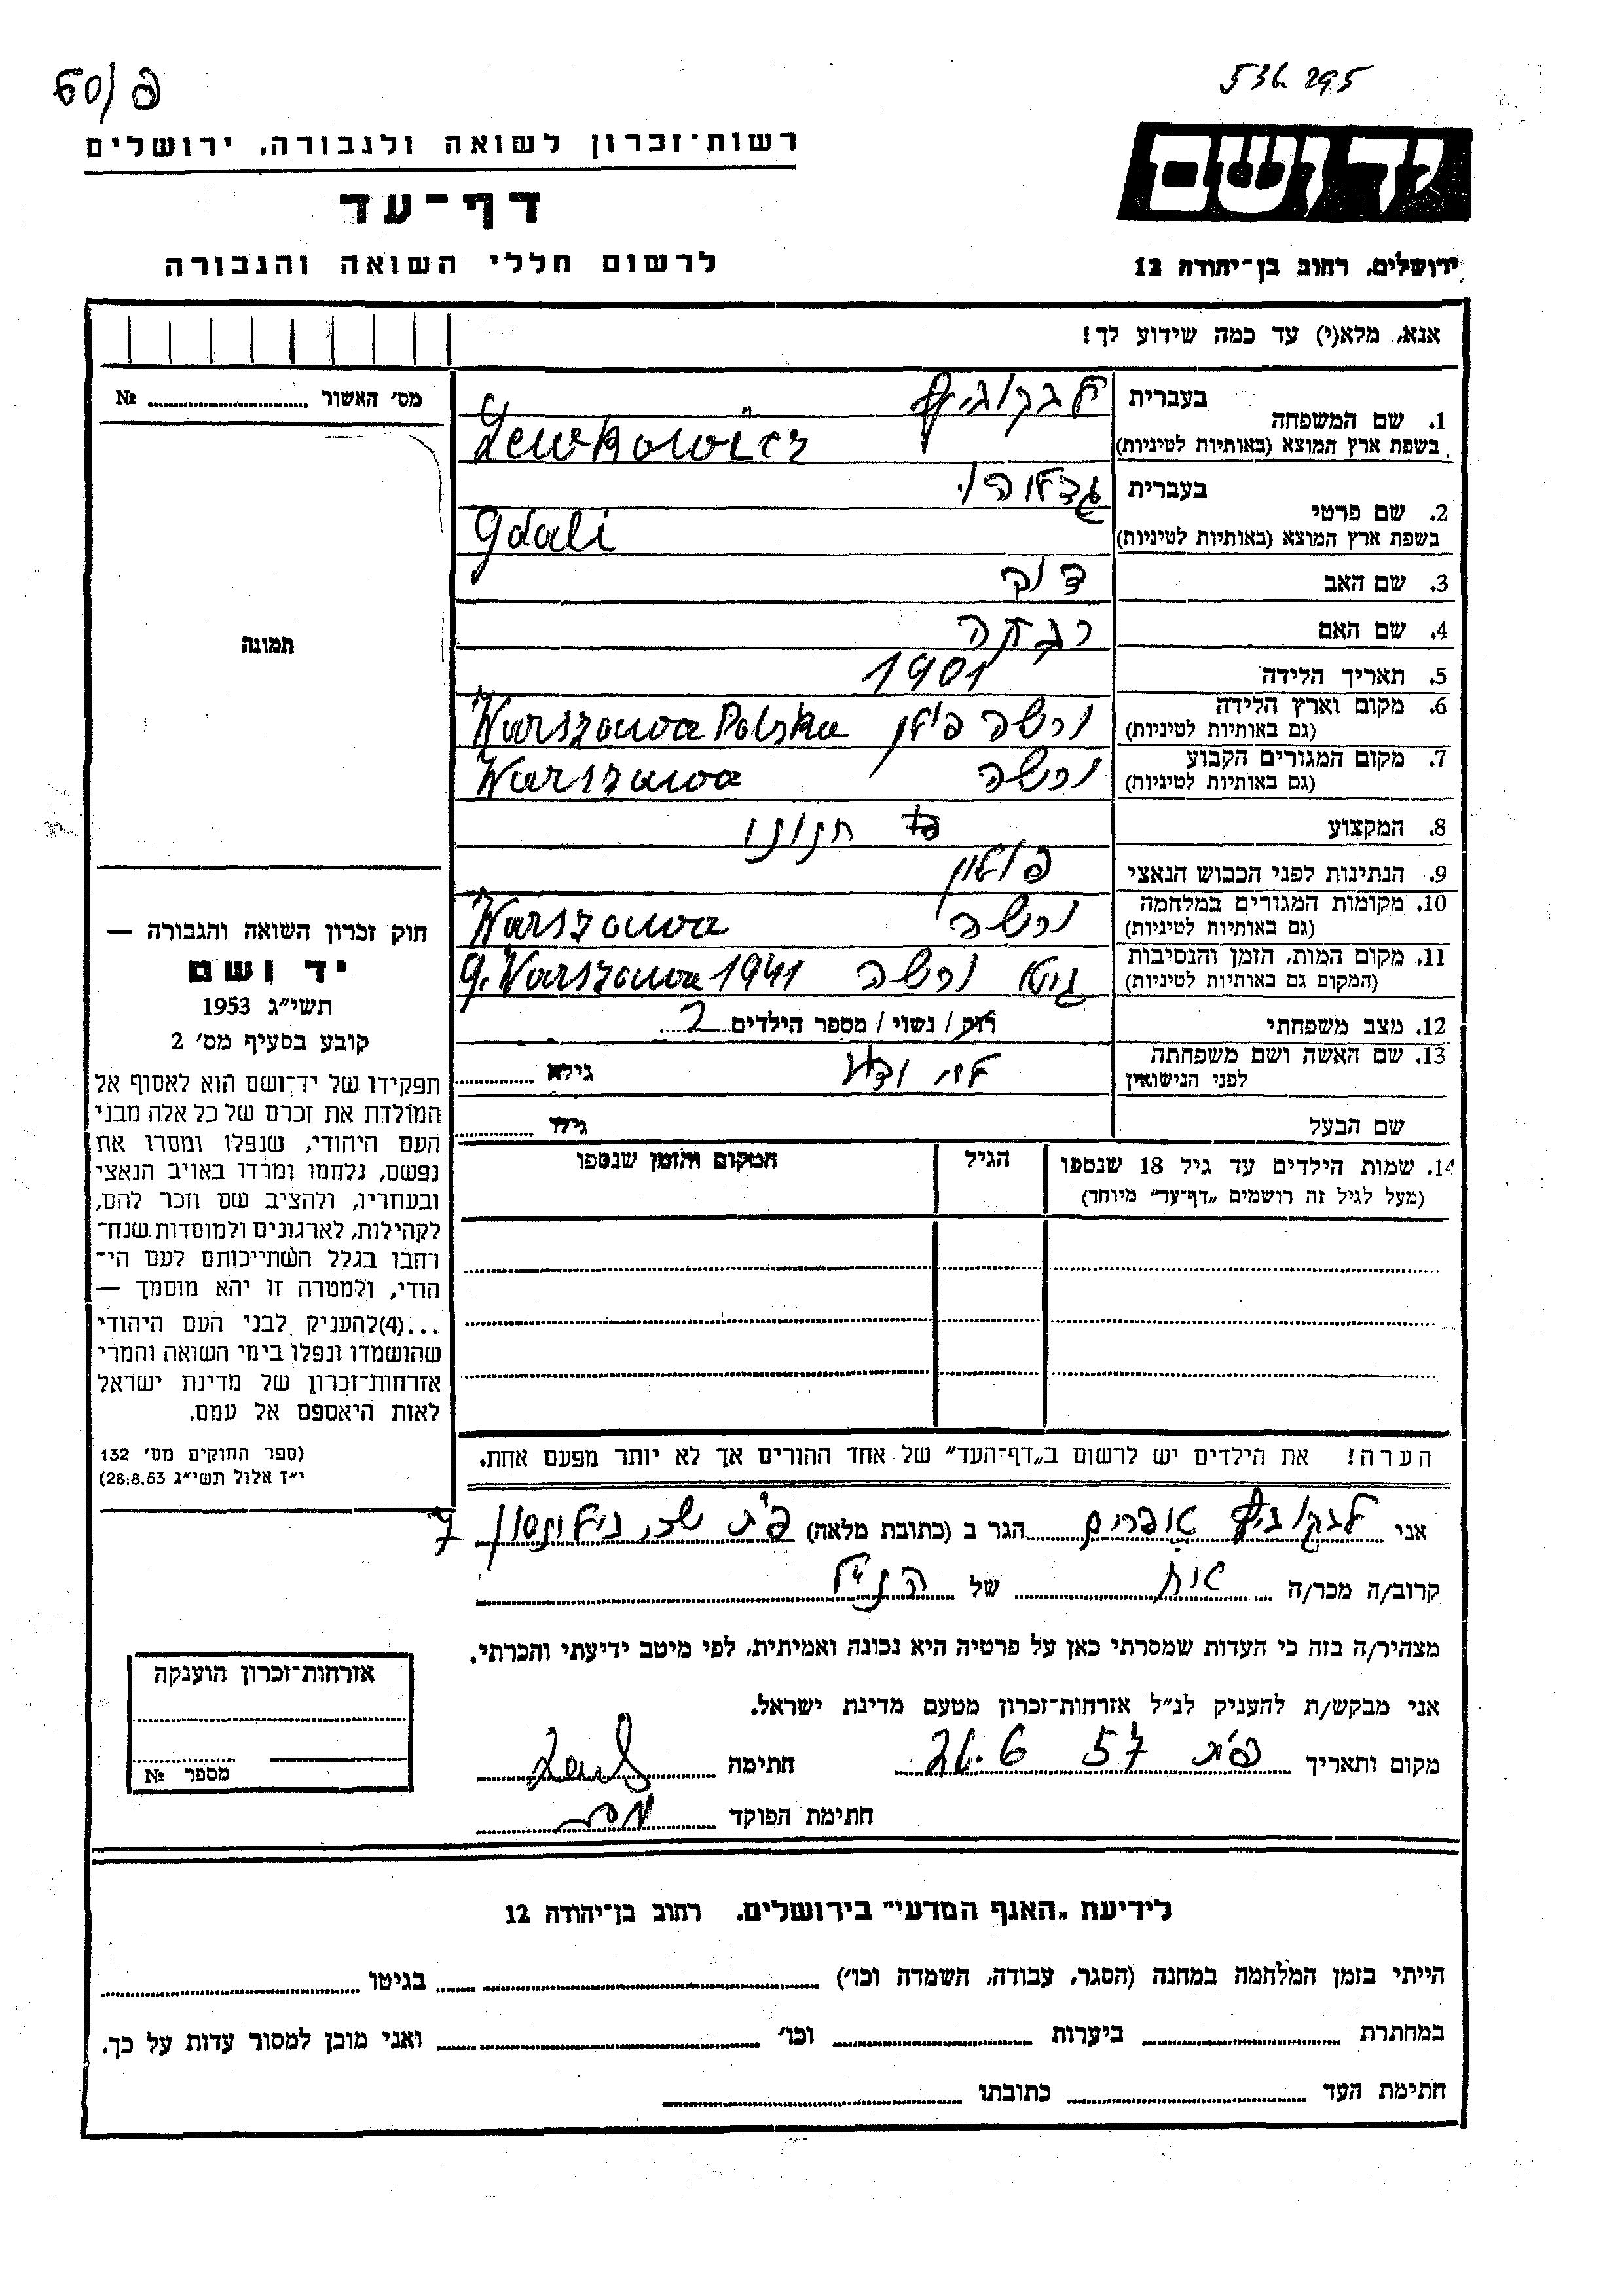 60/פ
536295
רשות־זכרון לשואה ולגבורה, ירושלים
דף־עד
לרשום חללי השואה והגבורה
יד ושם
ירושלים, רחוב בן־יהודה 12
אנא, מלא(י) עד כמה שידוע לך!
מס׳ האשור № 
תמונה
1. שם המשפחה בעברית לבקוביץ
בשפת ארץ המוצא (באותיות לטיניות) Lewkowicz
2. שם פרטי בעברית גדליהו
בשפת ארץ המוצא (באותיות לטיניות) Gdali
3. שם האב
4. שם האם רבקה
5. תאריך הלידה 1901
6. מקום וארץ הלידה ורשה פולין Warszawa Polska
(גם באותיות לטיניות)
7. מקום המגורים הקבוע ורשה Warszawa
(גם באותיות לטיניות)
8. המקצוע חנוני
9. הנתינות לפני הכבוש הנאצי פולין
10. מקומות המגורים במלחמה ורשה Warszawa
(גם באותיות לטיניות)
11. מקום המות, הזמן והנסיבות גיטו ורשה g. Warszawa 1941
(המקום גם באותיות לטיניות)
12. מצב משפחתי רווק / נשוי / מספר הילדים 2
13. שם האשה ושם משפחתה לא ידוע גילא
לפני הנישואין
שם הבעל גילו
14. שמות הילדים עד גיל 18 שנספו הגיל המקום והזמן שנספו
(מעל לגיל זה רושמים „דף־עד״ מיוחד)
הערה! את הילדים יש לרשום ב„דף־העד״ של אחד ההורים אך לא יותר מפעם אחת.
חוק זכרון השואה והגבורה —
יד ושם
תשי״ג 1953
קובע בסעיף מס׳ 2
תפקידו של יד־ושם הוא לאסוף אל
המולדת את זכרם של כל אלה מבני
העם היהודי, שנפלו ומסרו את
נפשם, נלחמו ומרדו באויב הנאצי
ובעוזריו, ולהציב שם וזכר להם,
לקהילות, לארגונים ולמוסדות שנח־
רחבו בגלל השתייכותם לעם הי־
הודי, ולמטרה זו יהא מוסמך —
...(4)להעניק לבני העם היהודי
שהושמדו ונפלו בימי השואה והמרי
אזרחות־זכרון של מדינת ישראל
לאות היאספם אל עמם.
(ספר החוקים מס׳ 132
י״ז אלול תשי״ג 28.8.53)
אני לבקוביץ אפרים הגר ב (כתובת מלאה) פ״ת 7
קרוב/ה מכר/ה אח של הנ״ל
מצהיר/ה בזה כי העדות שמסרתי כאן על פרטיה היא נכונה ואמיתית, לפי מיטב ידיעתי והכרתי.
אני מבקש/ת להעניק לנ״ל אזרחות־זכרון מטעם מדינת ישראל.
מקום ותאריך פ״ת 57 6 חתימה
חתימת הפוקד
אזרחות־זכרון הוענקה
מספר №
לידיעת „האגף המדעי״ בירושלים, רחוב בן־יהודה 12
הייתי בזמן המלחמה במחנה (הסגר, עבודה, השמדה וכו׳) בגיטו
במחתרת ביערות וכו׳ ואני מוכן למסור עדות על כך.
חתימת העד כתובתו